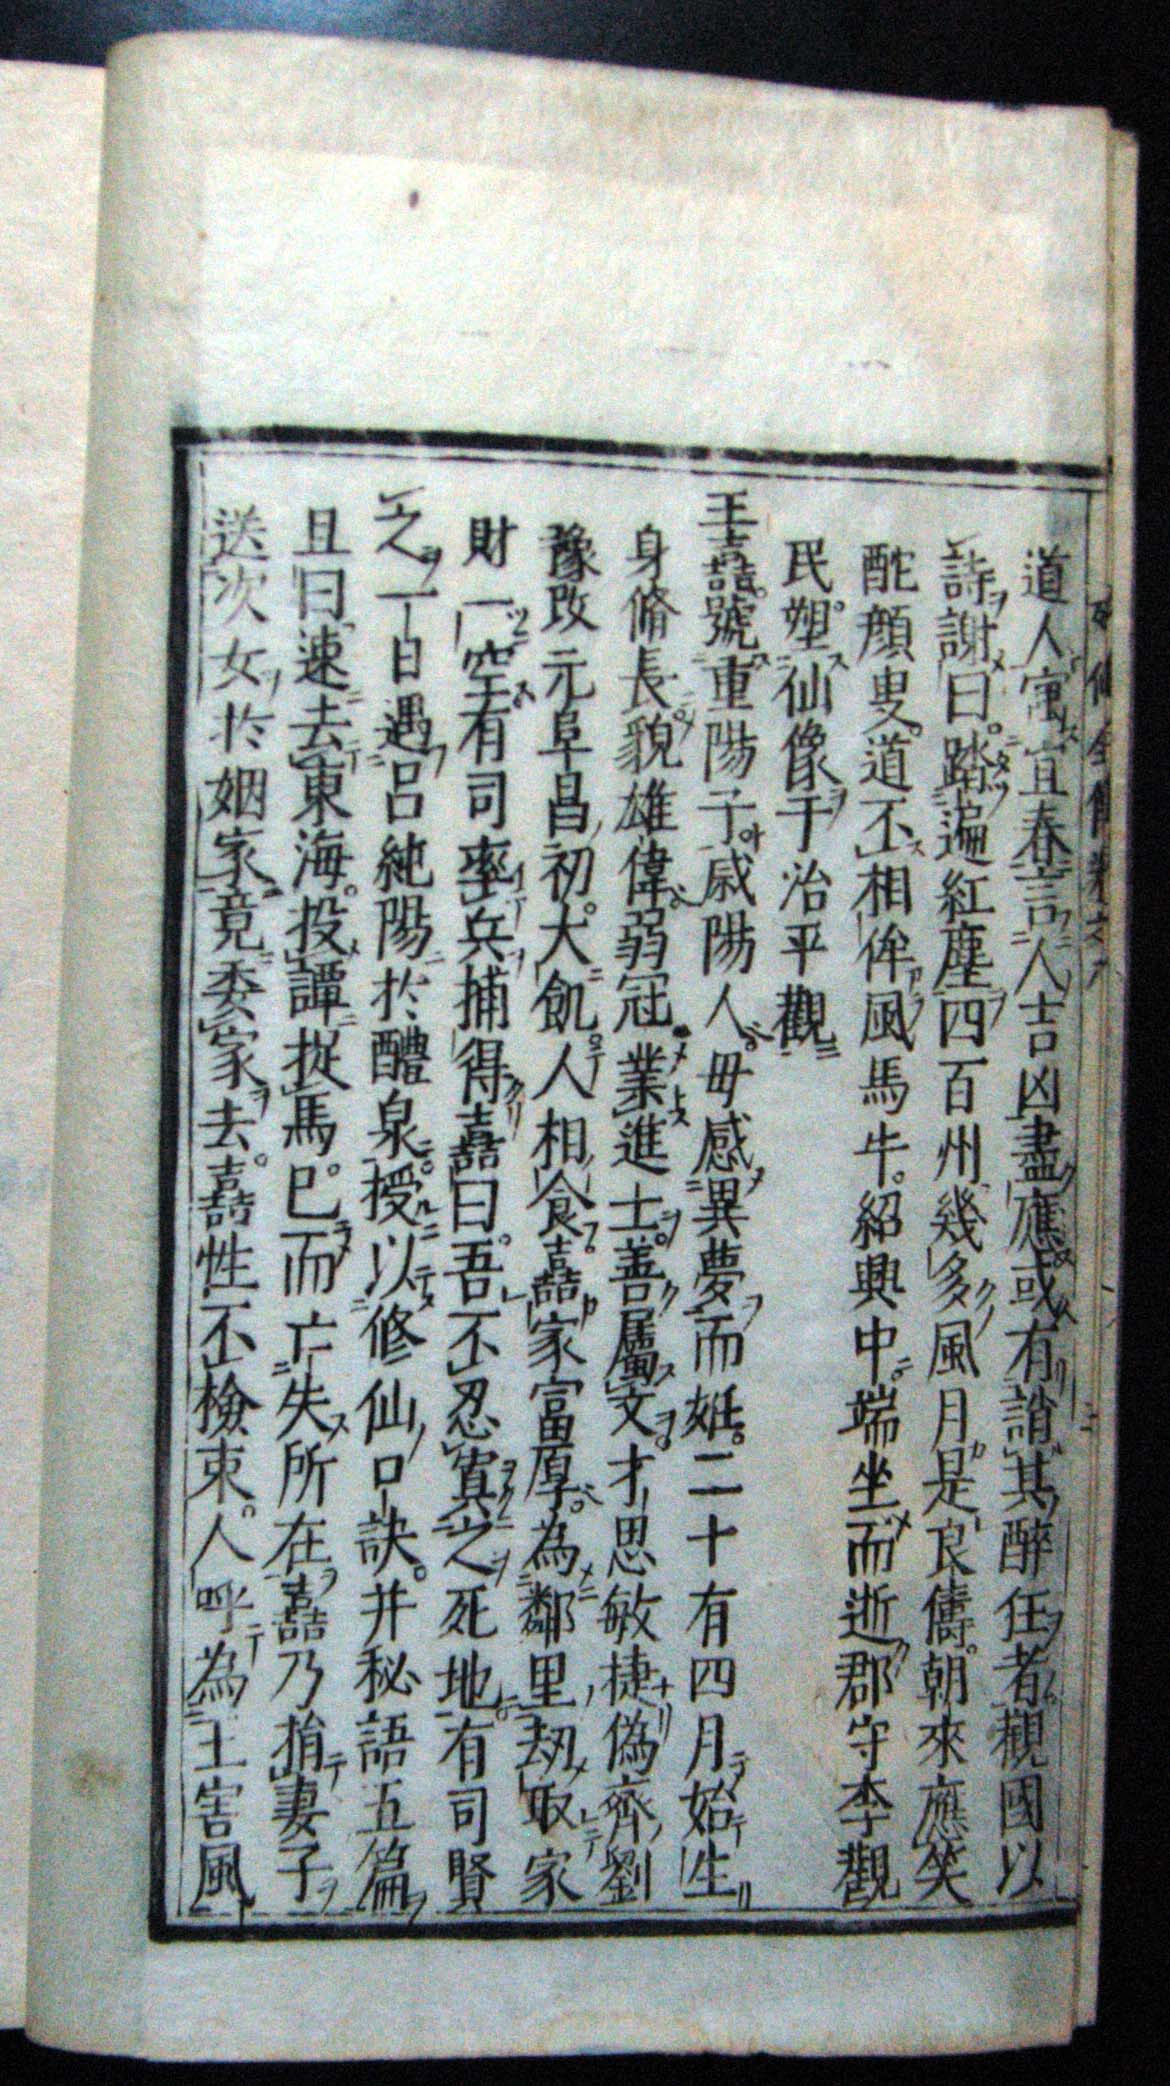 道人寓宜春言人吉凶盡應或有誚其醉任者觀國以
詩謝曰踏遍紅塵四百州幾多風月是良儔朝來應笑
酡顏叟道不相侔風馬牛紹興中端坐而逝郡守李觀
民塑仙像于治平觀
王嚞號重陽子咸陽人母感異夢而妊二十有四月始生
身脩長貌雄偉弱冠業進士善属文才思敏捷偽齊劉
豫改元阜昌初大飢人相食嚞家富厚為鄰里刼取家
財一空有司率兵捕得嚞曰吾不忍寘之死地有司賢
之一日遇呂純陽於醴泉授以修仙口訣并秘語五篇
且曰速去東海投譚捉馬已而亡失所在嚞乃捐妻子
送次女於姻家竟委家去嚞性不檢束人呼為王害風